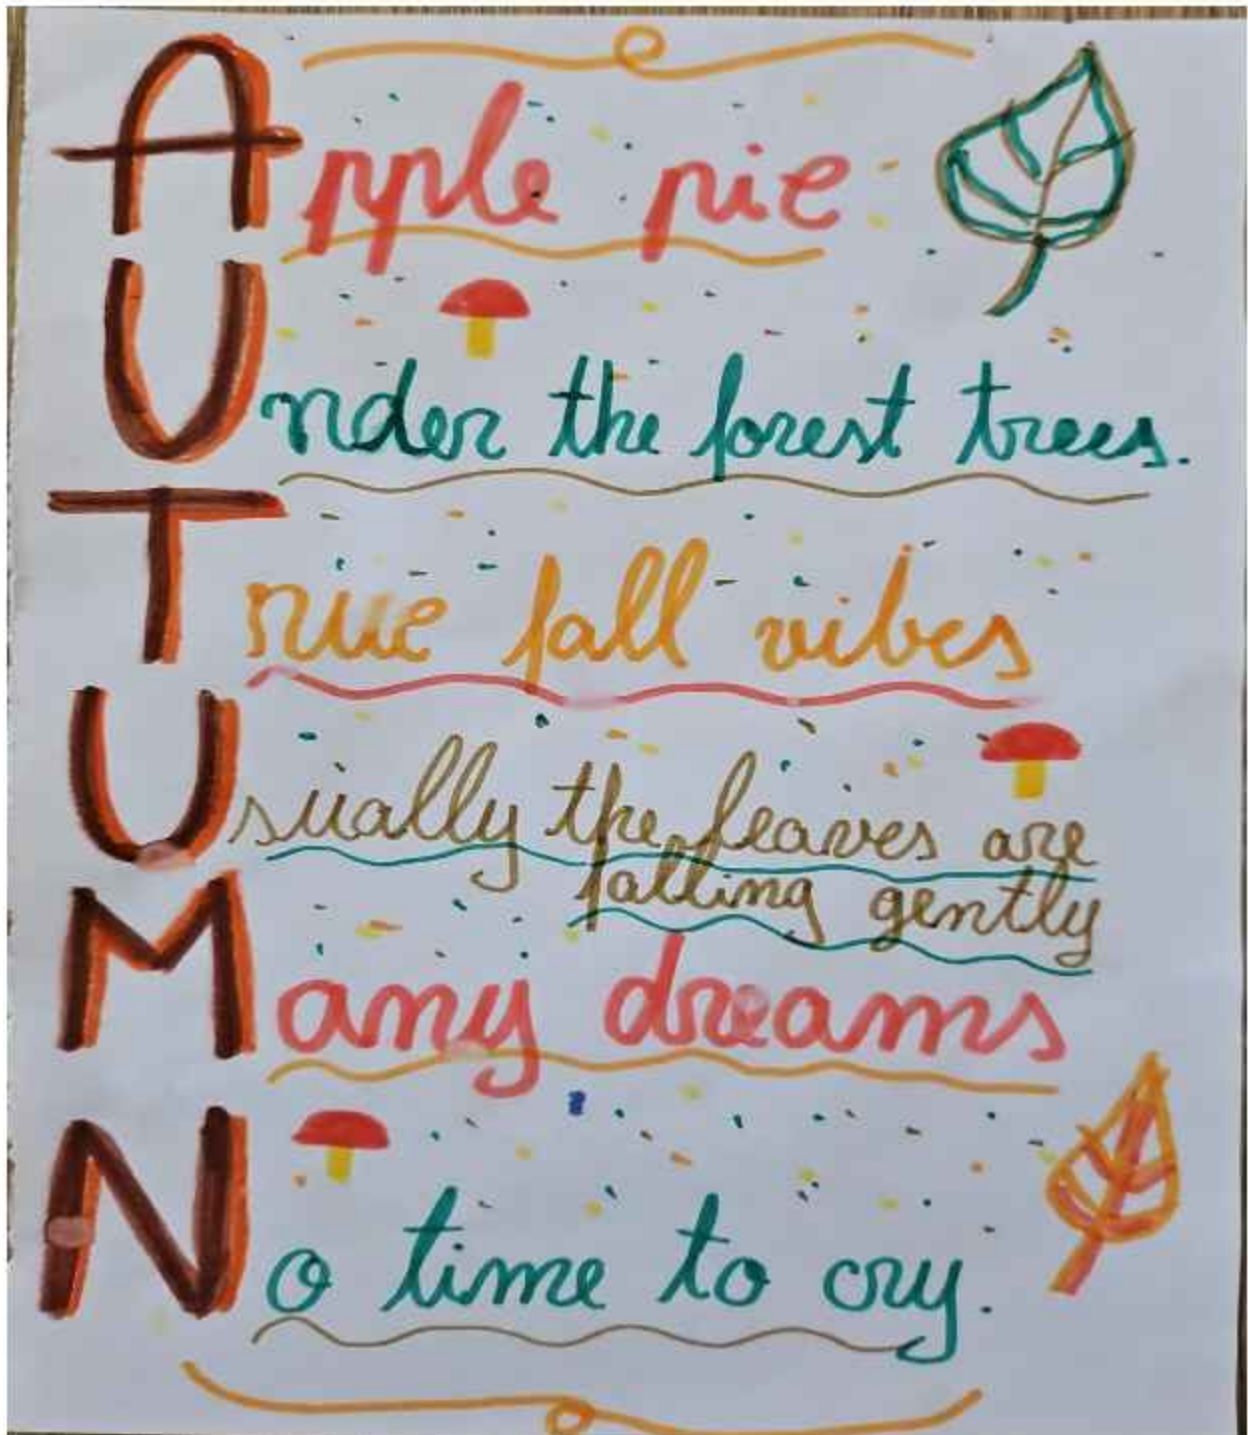 Apple pie
Under the forest trees.
True fall vibes
Usually the leaves are
falling gently
Many dreams
No time to cry.